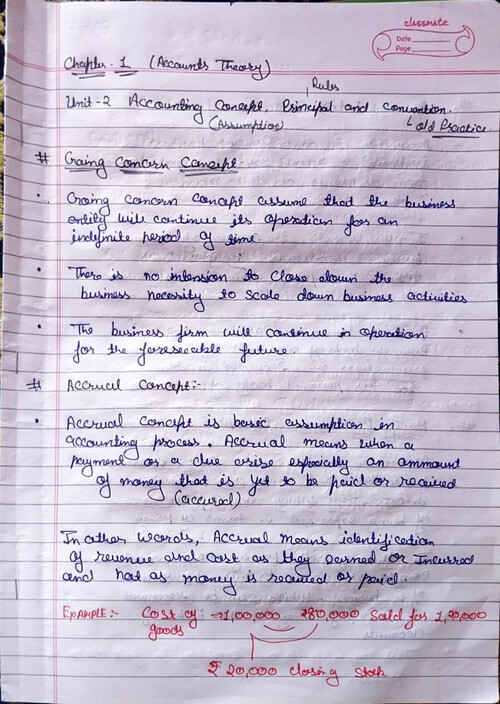 classmate
Date
Page
Chapter-1 (Accounts Theory)
Rules
Unit-2 Accounting Concept. Principal and convention.
(Assumption) old Practice
# Going Concern Concept
• Going concern concept assume that the business
entity will continue its operation for an
indefinite period of time
• There is no intension to close down the
business necessity to scale down business activities
• The business firm will continue in operation
for the foreseeable future.
# Accrual Concept:-
• Accrual concept is basic assumption in
accounting process. Accrual means when a
payment or a due arise especially an ammount
of money that is yet to be paid or received
(accured)
In other words, Accrual means identification
of revenue and cost as they earned or Incurred
and not as money is received or paid.
EXAMPLE:- Cost of 1,00,000 ₹80,000 Sold for 1,20,000
goods
₹ 20,000 closing stock